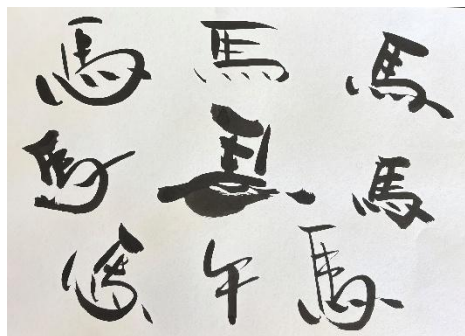 馬 馬 馬
馬 馬 馬
馬 午 馬